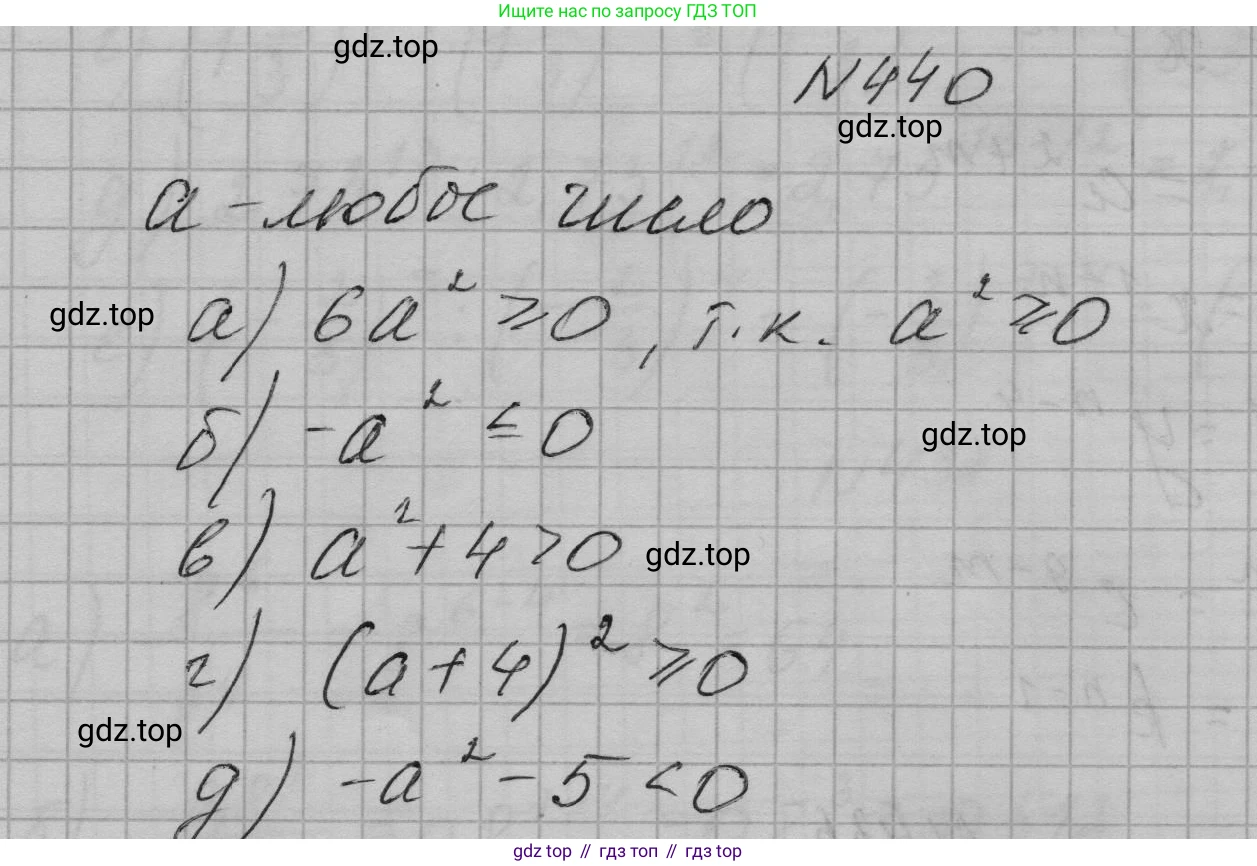 Ищите нас по запросу ГДЗ ТОП
gdz.top
N440
gdz.top
a - любое число
gdz.top
а) 6a² ≥ 0, т.к. a² ≥ 0
б) -a² ≤ 0
gdz.top
в) a² + 4 > 0
gdz.top
г) (a + 4)² ≥ 0
gdz.top
д) -a² - 5 < 0
gdz top // гдз топ // gdz top